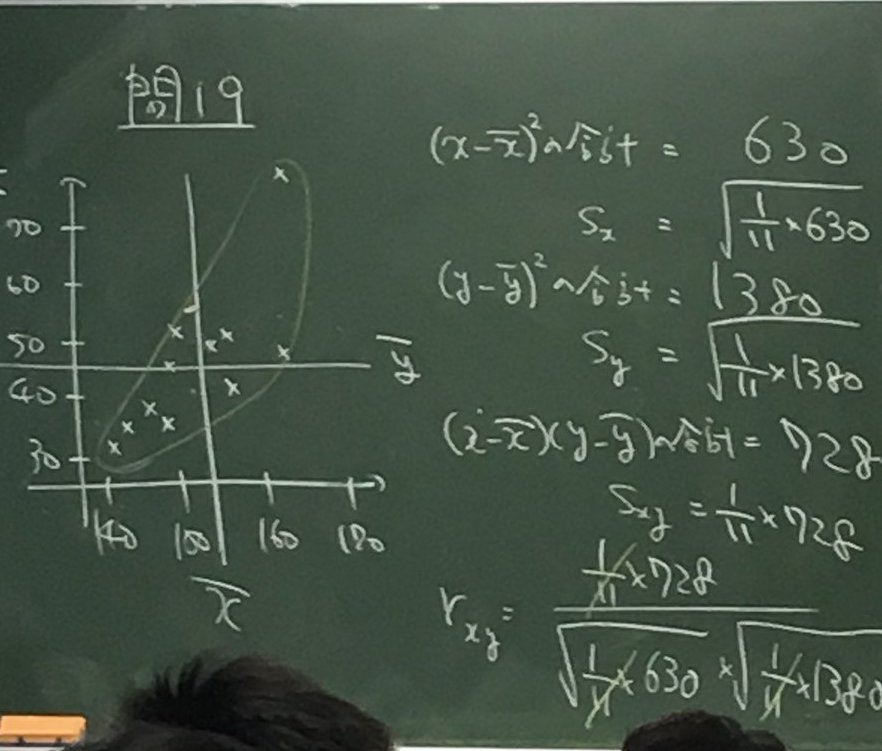 問19
70
60
50
40
30
140
100
160
170
x̄
ȳ
(x-x̄)²の合計 = 630
Sx = √(1/11×630)
(y-ȳ)²の合計 = 1380
Sy = √(1/11×1380)
(x-x̄)(y-ȳ)の合計 = 728
Sxy = 1/11×728
rxy = (1/11×728)/(√(1/11×630)×√(1/11×1380))